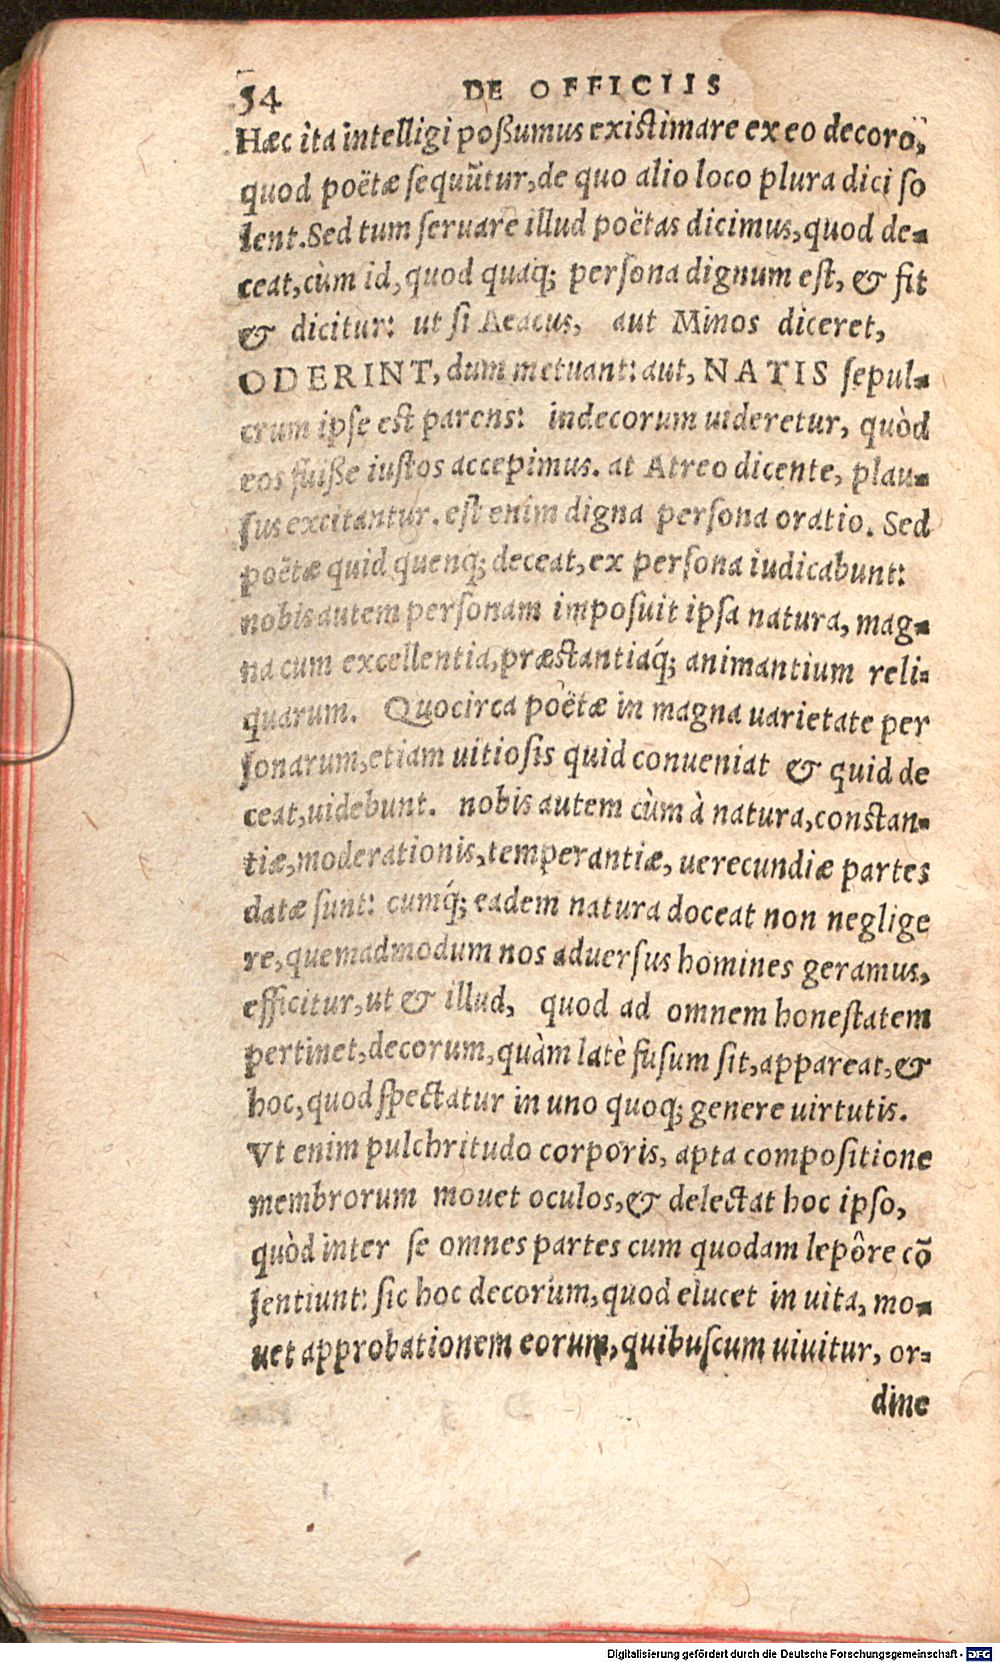 54 DE OFFICIIS
Hæc ita intelligi poßumus existimare ex eo decoro,
quod poëtæ sequũtur, de quo alio loco plura dici so
lent. Sed tum seruare illud poëtas dicimus, quod de-
ceat, cùm id, quod quaq; persona dignum est, & fit
& dicitur: ut si Aeacus, aut Minos diceret,
ODERINT, dum metuant: aut, NATIS sepul-
crum ipse est parens: indecorum uideretur, quòd
eos fuiße iustos accepimus. at Atreo dicente, plau-
sus excitantur. est enim digna persona oratio. Sed
poëtæ quid quenq; deceat, ex persona iudicabunt:
nobis autem personam imposuit ipsa natura, mag-
na cum excellentia, præstantiaq́; animantium reli-
quarum. Quocirca poëtæ in magna uarietate per
sonarum, etiam uitiosis quid conueniat & quid de
ceat, uidebunt. nobis autem cùm à natura, constan-
tiæ, moderationis, temperantiæ, uerecundiæ partes
datæ sunt: cumq́; eadem natura doceat non neglige
re, quemadmodum nos aduersus homines geramus,
efficitur, ut & illud, quod ad omnem honestatem
pertinet, decorum, quàm latè fusum sit, appareat, &
hoc, quod spectatur in uno quoq; genere uirtutis.
Vt enim pulchritudo corporis, apta compositione
membrorum mouet oculos, & delectat hoc ipso,
quòd inter se omnes partes cum quodam lepôre cõ
sentiunt: sic hoc decorum, quod elucet in uita, mo-
uet approbationem eorum, quibuscum uiuitur, or-
dine
Digitalisierung gefördert durch die Deutsche Forschungsgemeinschaft - DFG